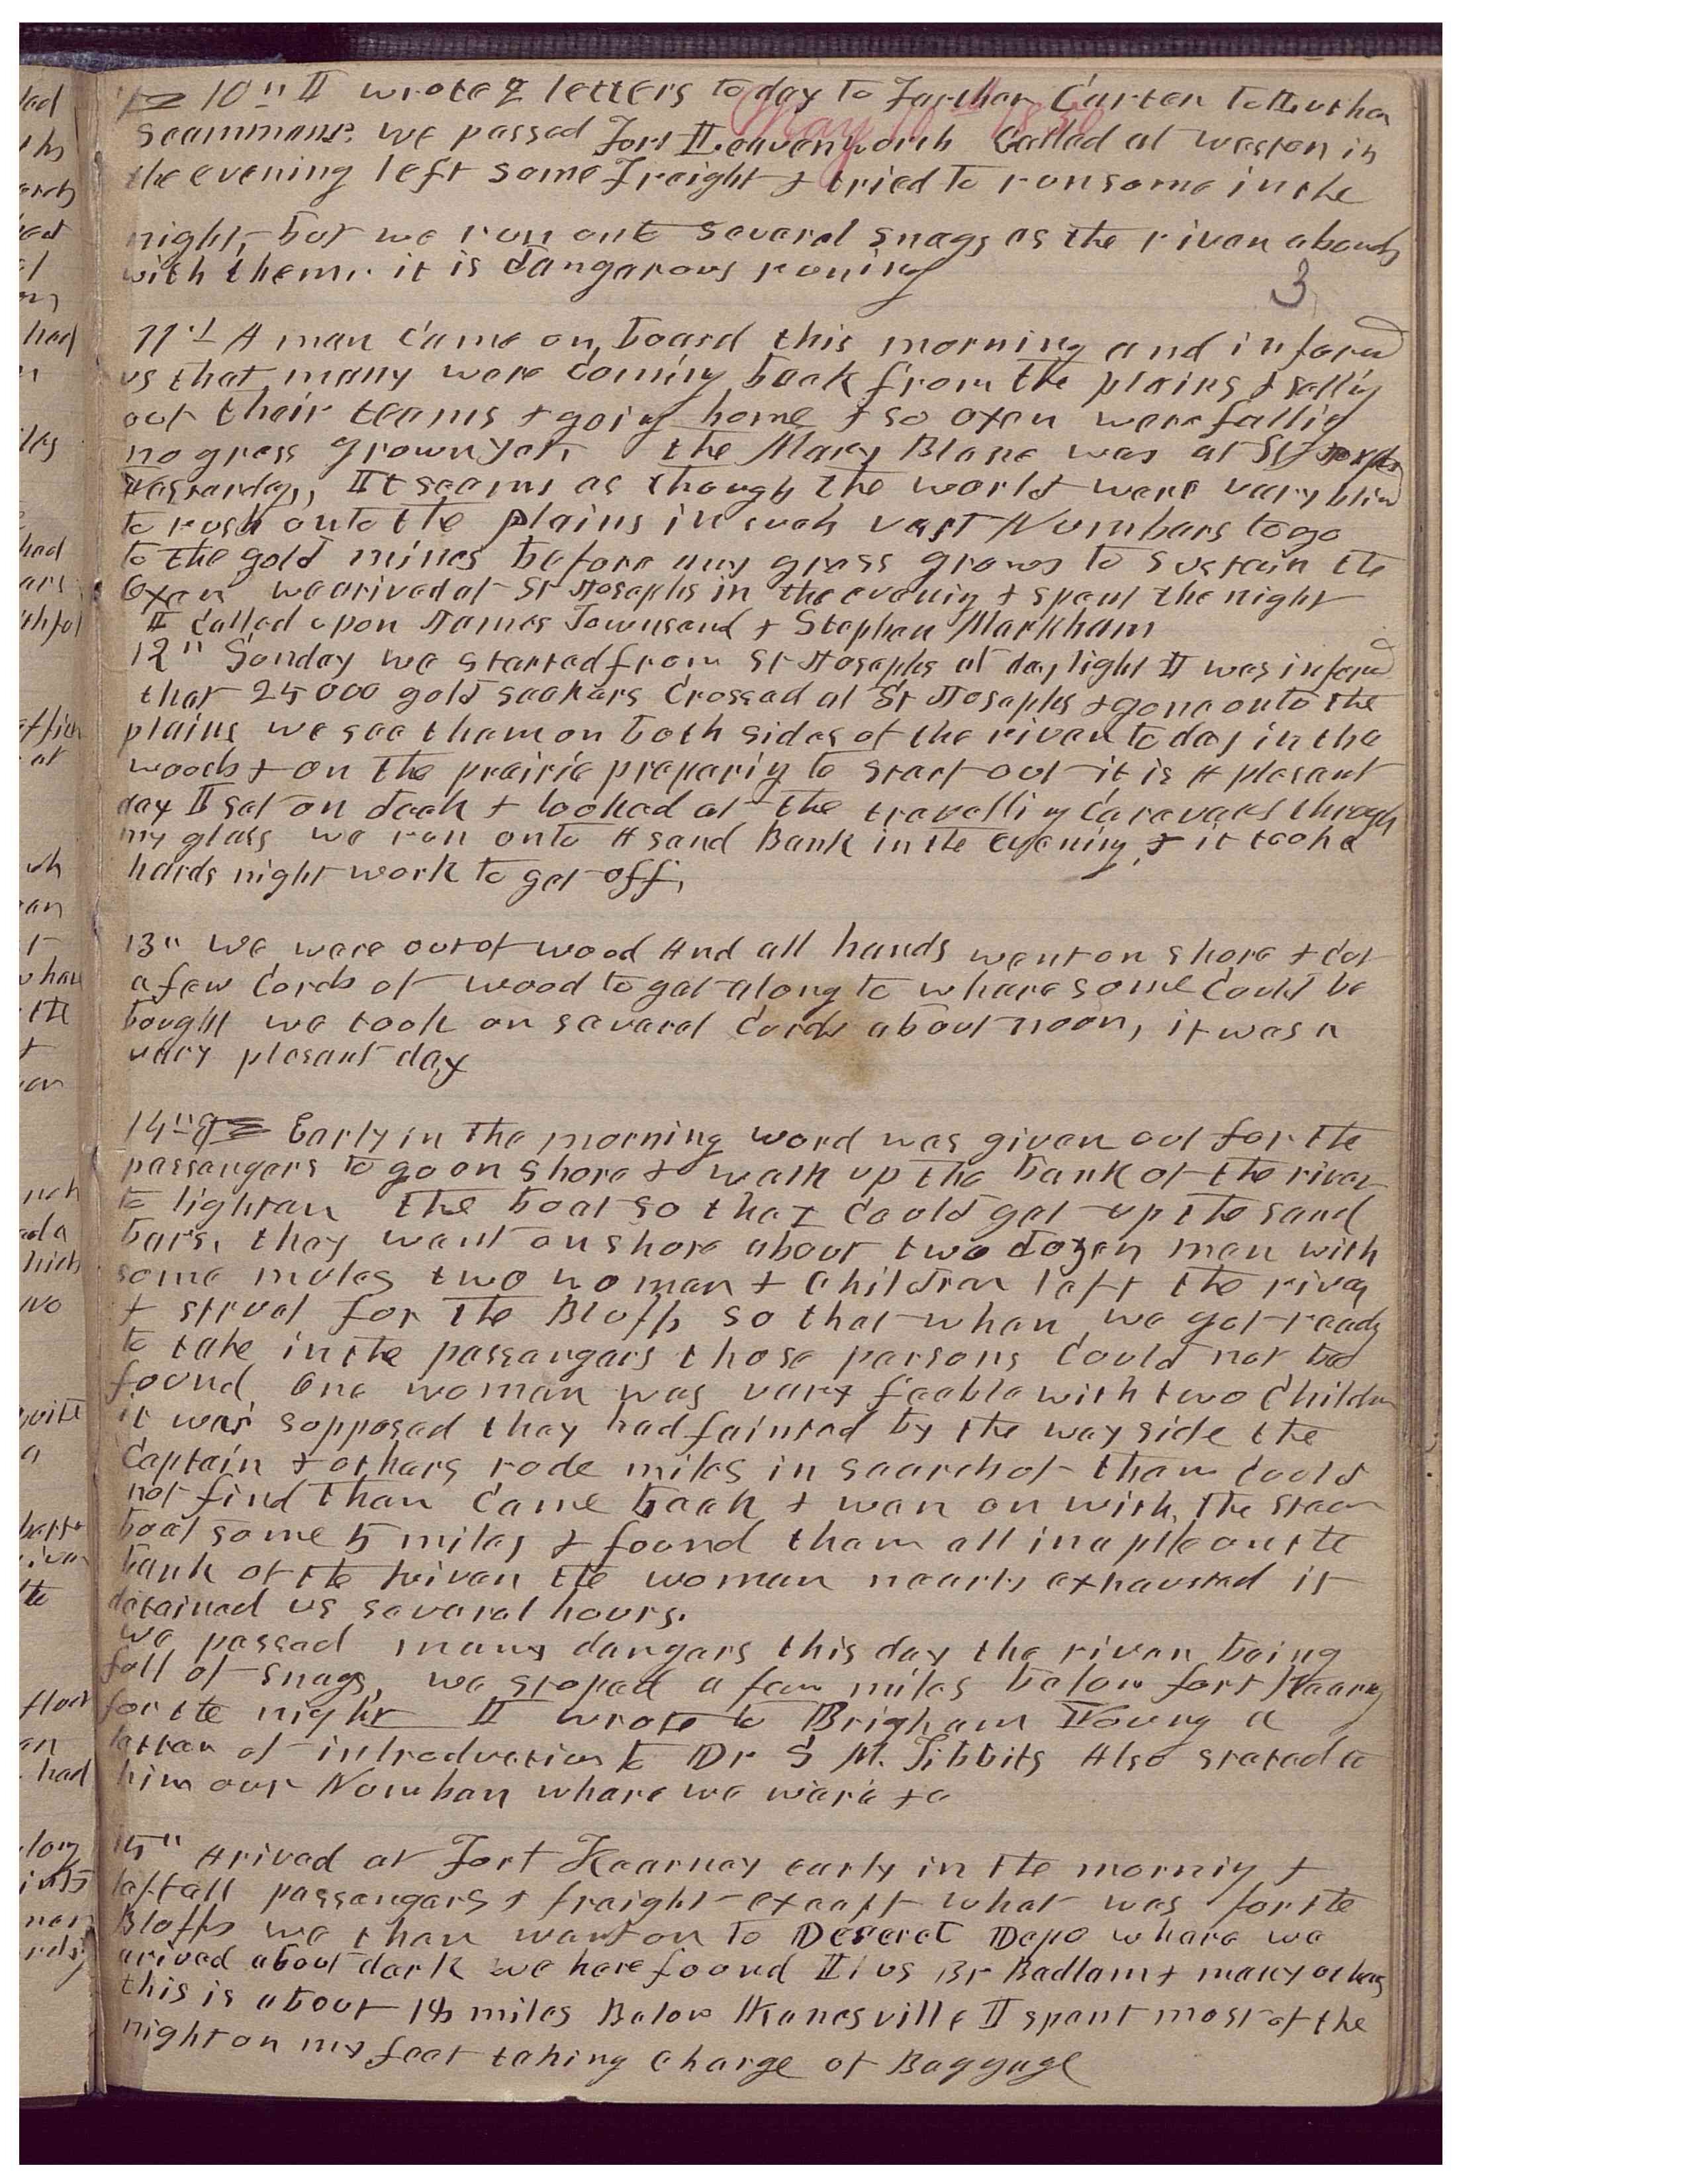 10" I wrote 2 letters to day to Father Carter to Luther
Scammans. we passed Fort Leavenworth Called at Weston in
May 10th 1850
the evening left some Freight & tried to run some in the
night, but we run onto several snags as the river abounds
with them. it is dangerous runing
3
11" A man came on board this morning and informd
us that many were coming back from the plains & selling
out their teams & going home & so oxen were falling
no grass grown yet, the Mary Blane was at St Josephs
yesterday, It seems as though the world were very blind
to rush onto the plains in such vast Numbers to go
to the gold mines before any grass grows to sustain the
Oxen we arived at St Josephs in the evening & spent the night
I called upon James Townsend & Stephen Markham
12" Sunday we started from St Josephs at day light I was informd
that 25000 gold seekers Crossed at St Josephs & gone onto the
plains we see them on both sides of the river to day in the
woods & on the prairie preparing to start out it is A plesant
day I sat on deck & looked at the travelling caravans through
my glass we run onto A sand Bank in the evening & it took a
hards night work to get off,
13" We were out of wood And all hands went on shore & cut
a few Cords of wood to get along to where some could be
bought we took on several cords about noon, it was a
very plesant day
14" Early in the morning word was given out for the
passengers to go on shore & walk up the bank of the river
to lighten the boat so that could get up the sand
bars. they went on shore about two dozen men with
some mules two women & Children left the river
& struct for the Bluffs so that when we got ready
to take in the passengers those persons could not be
found One woman was very feeble with two Children
it was supposed they had fainted by the way side the
Captain & others rode miles in search of them could
not find them came back & wen on with the steam
boat some 5 miles & found them all in a pile on the
bank of the river the woman nearly exhausted it
detained us several hours.
We passed many dangers this day the river being
full of snags, we stoped a few miles below fort Kearny
for the night I wrote to Brigham Young a
letter of introduction to Dr S M. Tibbits Also stated to
him our Number where we ware &c
15" Arived at Fort Kearney early in the morning &
left all passengers & freight except what was for the
Bluffs we then went on to Deseret Depo where we
arived about dark we here found Br Badlam & many others
this is about 18 miles Below Kanesville I spent most of the
night on my feet taking Charge of Baggage